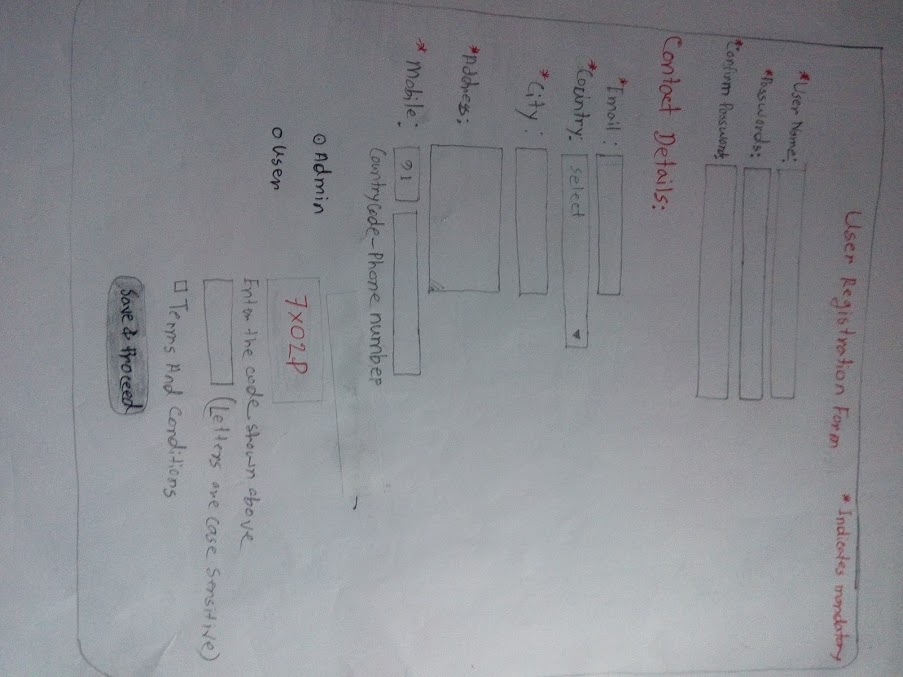 User Registration Form
* Indicates mandatory
*User Name:
*Passwords:
*Confirm Password:
Contact Details:
*Email :
*Country: select
*City :
*Address:
* Mobile: 91
CountryCode-Phone number
Admin
7X02P
User
Enter the code shown above
(Letters are case sensitive)
Terms And Conditions
Save & Proceed